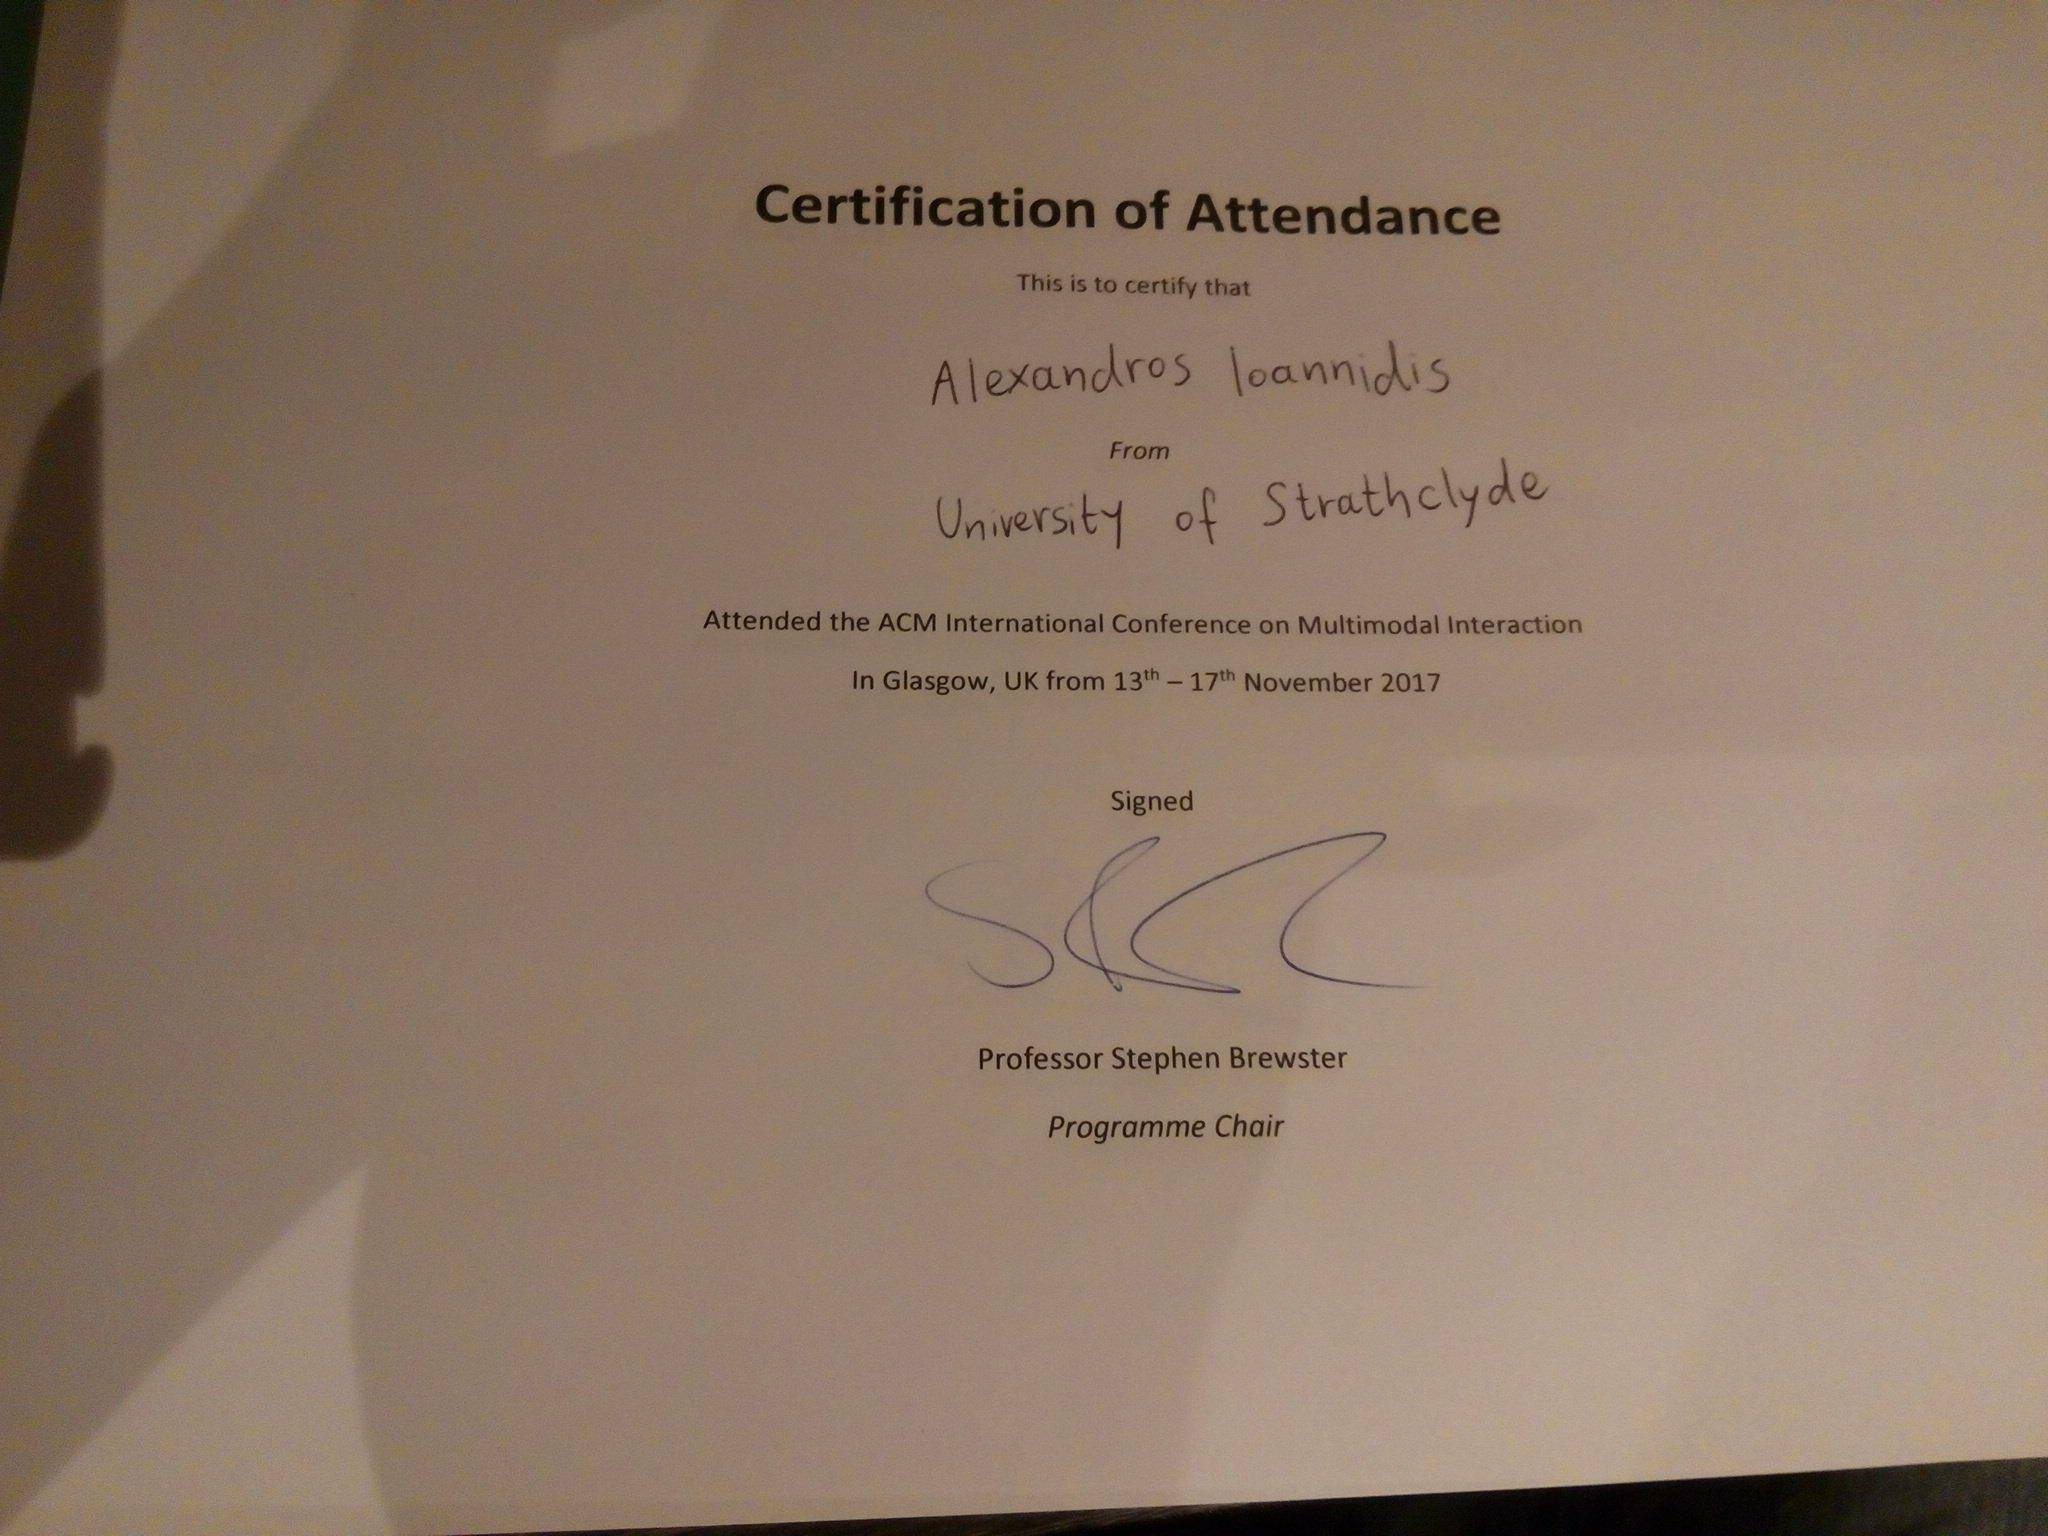 Certification of Attendance
This is to certify that
Alexandros Ioannidis
From
University of Strathclyde
Attended the ACM International Conference on Multimodal Interaction
In Glasgow, UK from 13th – 17th November 2017
Signed
Professor Stephen Brewster
Programme Chair